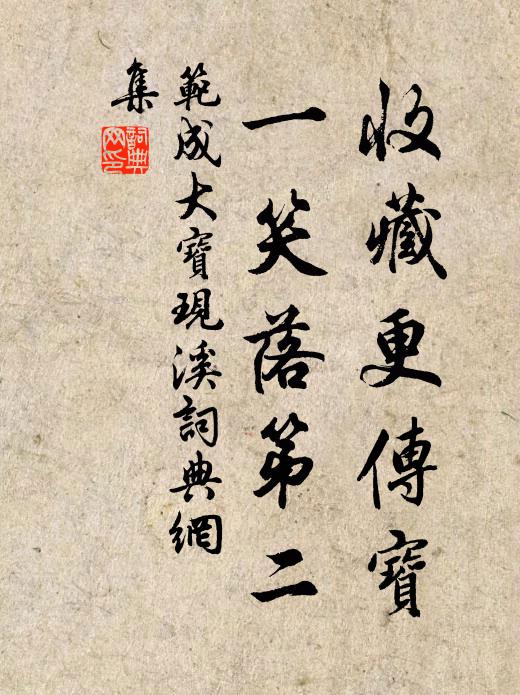 收藏更傳寶
一笑落第二
範成大寶現溪詞典網
集
詞典網印